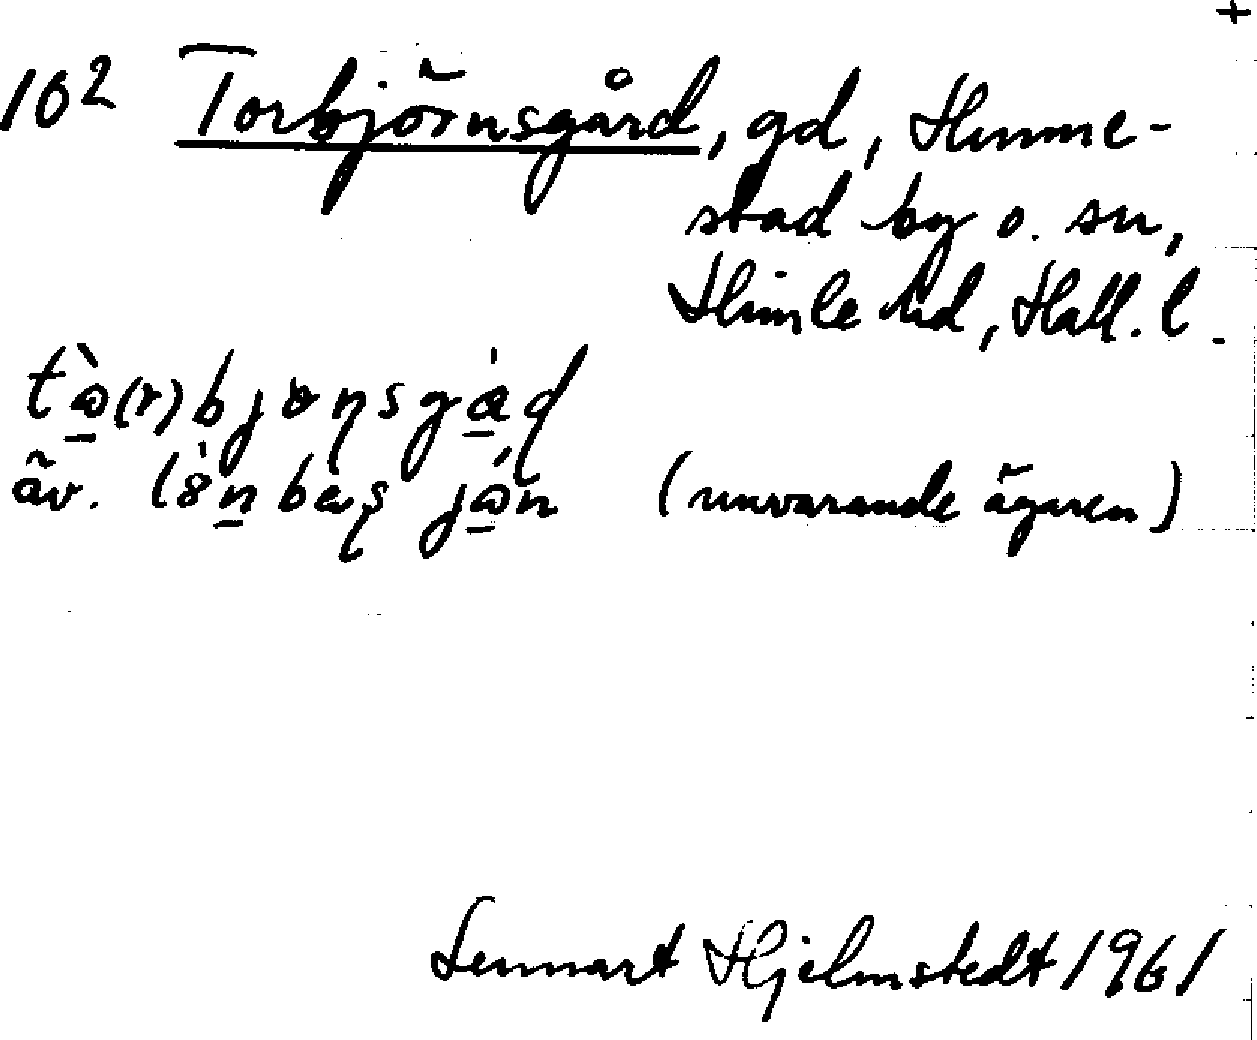 +
10² Torbjörnsgård, gd, Hunne-
stad by o. sn,
Himle hd, Hall. l.
tɷ̀(r)bjɵɳsgád
äv. (nuvarande ägaren)
Lennart Hjelmstedt 1961